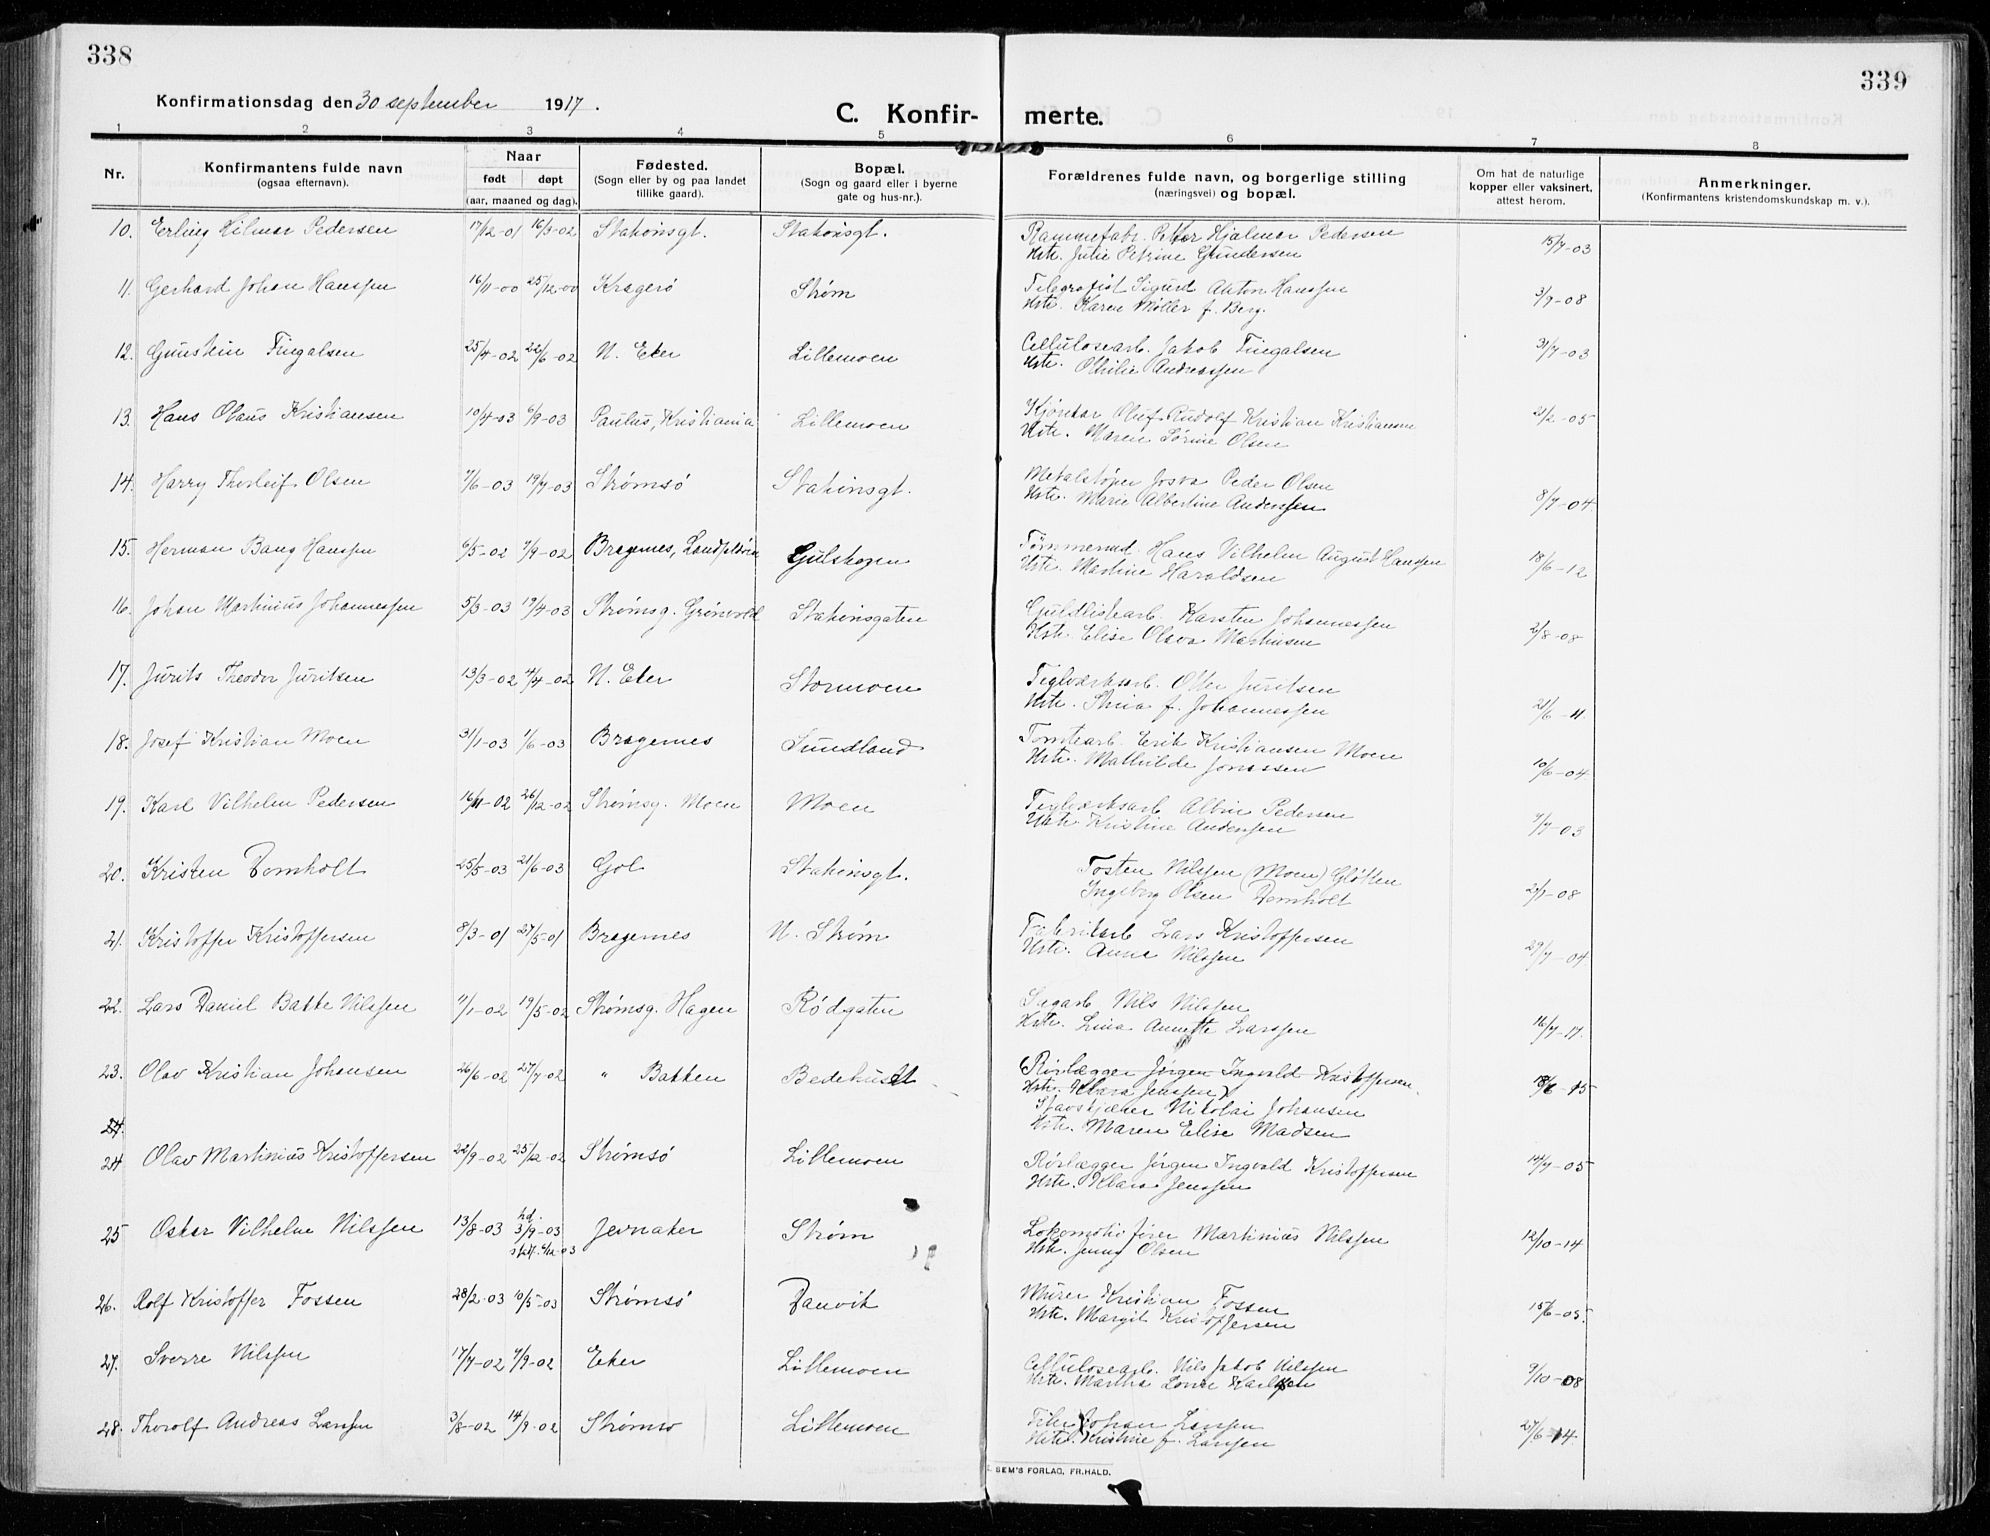 338
339
Konfirmationsdag den 30 september 1917.
C. Konfir- merte.
1 2 3 4 5 6 7 8
Nr.
Konfirmantens fulde navn
(ogsaa efternavn).
Naar
født døpt
(aar, maaned og dag).
Fødested.
(Sogn eller by og paa landet
tillike gaard).
Bopæl.
(Sogn og gaard eller i byerne
gate og hus-nr.).
Forældrenes fulde navn, og borgerlige stilling
(næringsvei) og bopæl.
Om hat de naturlige
kopper eller vaksinert,
attest herom.
Anmerkninger.
(Konfirmantens kristendomskundskap m. v.).
10. Erling Hilmar Pedersen 17/12-01 16/3-02 Stationsgt. Stationsgt. Rammefabr. Petter Hjalmar Pedersen 15/7-03
Hstr. Julie Petrine Gundersen
11. Gerhard Johan Hanssen 16/11-00 25/12-00 Kragerø Strøm Telegrafist Sigurd Anton Hanssen 3/9-08
Hstr. Karen Møller f. Berg.
12. Gunstein Fingalsen 25/4-02 22/6-02 N. Eker Lillemoen Cellulosearb. Jakob Fingalsen 31/7-03
Hstr. Othilie Andreassen
13. Hans Olaus Kristiansen 10/7-03 6/9-03 Paulus, Kristiania Lillemoen Kjørekar Oluf Rudolf Kristian Kristiansen 2/2-05
Hstr. Maren Sørine Olsen
14. Harry Thorleif Olsen 7/6-03 19/7-03 Strømsø Stationsgt. Metalstøper Josva Peder Olsen 8/7-04
Hstr. Marie Albertine Anderssen
15. Herman Bang Hanssen 6/5-02 7/9-02 Bragernes, Gulskogen Tømmermd. Hans Vilhelm August Hanssen 18/6-12
Hstr. Martine Haraldsen
16. Johan Martinius Johannessen 5/3-03 19/4-03 Strømsg. Grønvold Stationsgaten Guldlistearb. Karsten Johannessen 2/8-08
Hstr. Elise Olava Martinsen
17. Jurits Theodor Juritsen 13/3-02 N. Eker Stormoen Teglverksarb. Otter Juritsen 21/6-11.
Hstr. Stina f. Johannessen
18. Josef Kristian Moen 31/1-03 1/6-03 Bragernes Sundland Tomtearb. Erik Kristiansen Moen 10/6-04
Hstr. Mathilde Jonassen
19. Karl Vilhelm Pedersen 16/11-02 26/12-02 Strømsg. Moen Moen Teglverksarb. Albin Pedersen 7/7-03
Hstr. Kristine Anderssen
20. Kristen Domholt 25/5-03 21/6-03 Gol Stationsgt. Tosten Nilssen (Moen) Gløtten 2/1-08
Ingeborg Olsen Domholt
21. Kristoffer Kristoffersen 8/3-01 27/5-01 Bragernes N. Strøm Fabrikarb. Lars Kristoffersen 29/7-04
Hstr. Anna Nilssen
22. Lars Daniel Bakke Nilssen 7/1-02 19/5-02 Strømsg. Hagen Rødgaten Sagarb. Nils Nilssen 16/7-17.
Hstr. Lina Annette Larssen
23. Olav Kristian Johansen 26/6-02 27/7-02 " Bakken Bedehuset Rørlægger Jørgen Ingvald Kristoffersen -15
Hstr. Klara Jenssen
Stavskjærer Nikolai Johansen
Hstr. Maren Elise Madsen
24.
24 Olav Martinius Kristoffersen 22/9-02 25/12-02 Strømsø Lillemoen Rørlægger Jørgen Ingvald Kristoffersen 14/7-05
Hstr. Klara Jenssen
25 Oskar Vilhelm Nilssen 13/8-03 hd. 3/9-03 Jevnaker Strøm Lokomotivfører Martinius Nilssen 12/10-14
Hstr. Jenny Olsen
26. Rolf Kristoffer Fossen 28/2-03 10/5-03 Strømsø Danvik Murer Kristian Fossen 15/6-05.
Hstr. Margit Kristoffersen
27. Sverre Nilssen 17/7-02 7/9-02 Eker Lillemoen Cellulosearb. Nils Jakob Nilssen 9/10-08
Hstr. Martha Lovise Karlssen
28. Thorolf Andreas Larssen 3/8-02 14/9-02 Strømsø Lillemoen Filer Johan Larssen 27/6-14.
Hstr. Kristine f. Larssen
SEM'S FORLAG, FR.HALD.